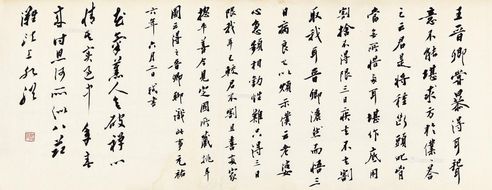 王晉卿嘗暴得耳聾
意不能堪求方於僕僕答
之云君是將種斷頭穴胸
當無所惜兩耳堪作底用
割捨不得限三日疾去不去割
取我耳晉卿灑然而悟三
日病良已以頌示僕云老婆
心急頻相勸性難只得三日
限我耳已較君不割且喜兩家
總平善今見定國所藏挑耳
圖云得之晉卿聊識此事元祐
六年六月二日軾書
花氣薰人欲破禪心
情其實過中年春來
詩思何所似八節
灘頭上水船